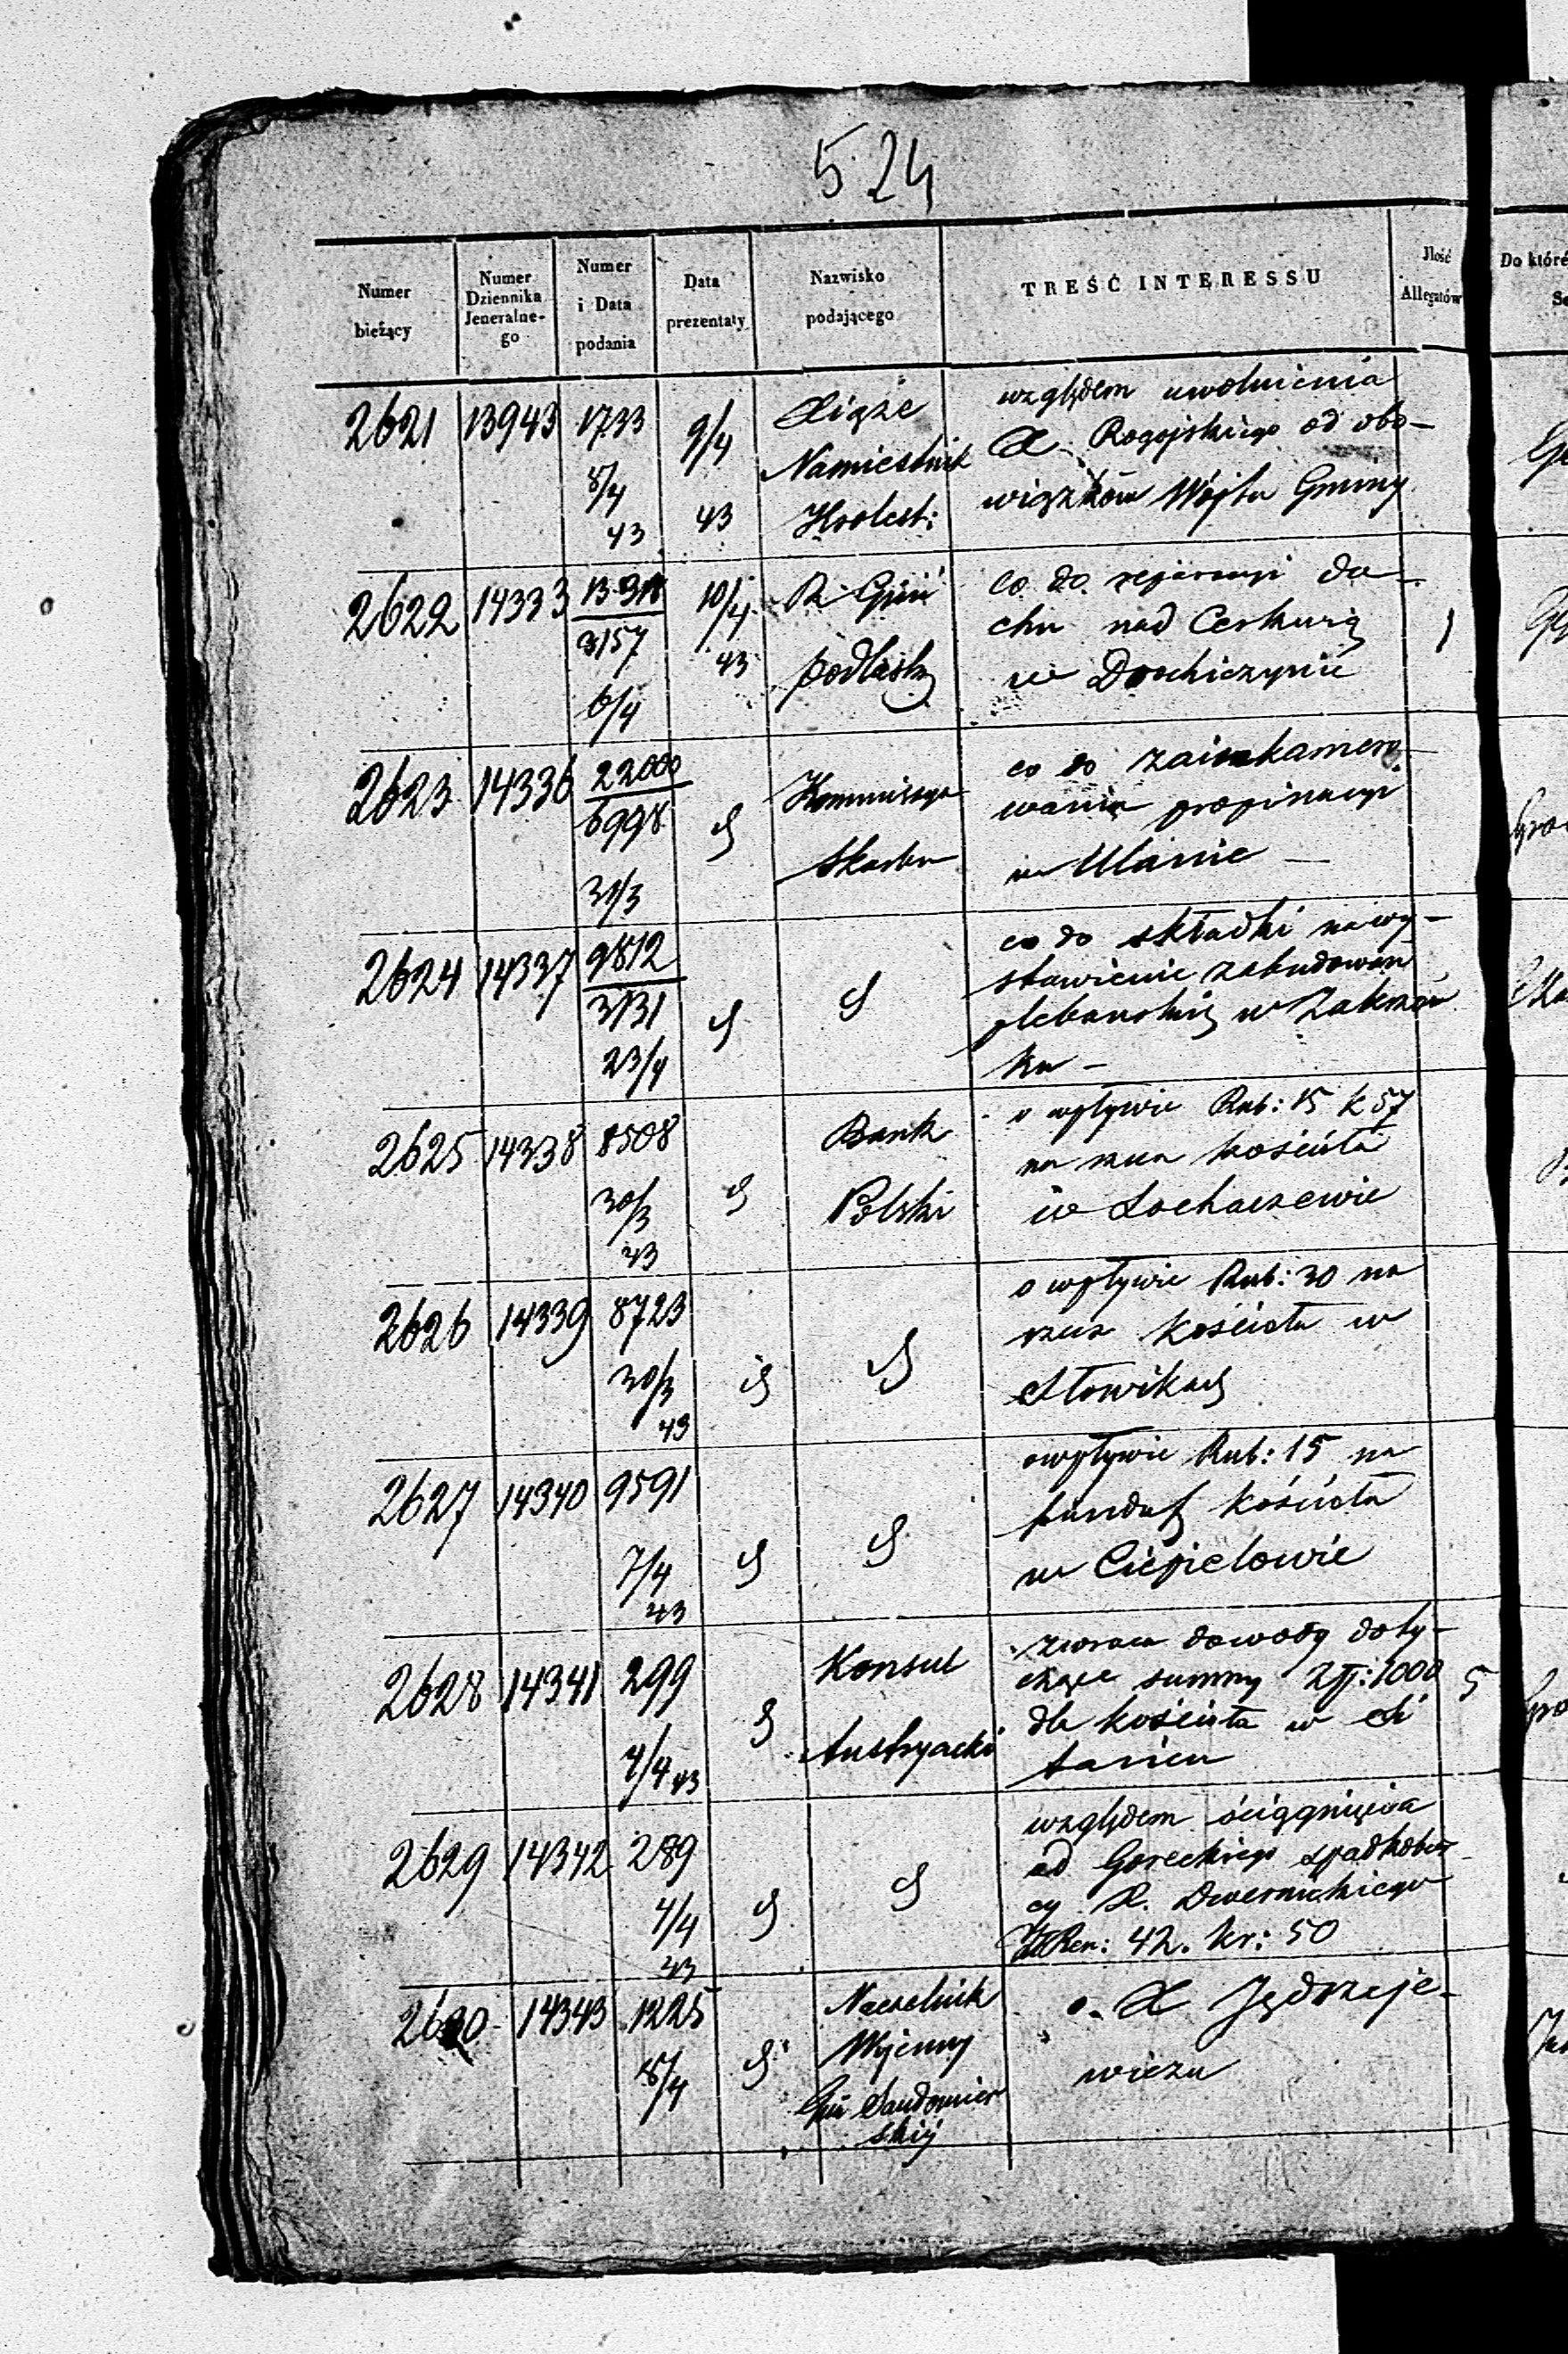 524
Numer bieżący
Numer Dziennika Jeneralne-go
Numer i Data podania
Data prezentaty
Nazwisko podającego
TREŚĆ INTERESSU
Ilość Allegatów
Do które
2621 13943 1733 8/4 43 9/4 43
Xiąże
Namiestnik
Krolest:
względem uwolnienia
X. Rogojskiego od obo-
wiązków Wójta Gminy
2622 14333 3157 6/4 10/4 43
R. Gub
podlaski
co do reparacyi da-
chu nad Cerkwią
w Drohiczynie
1
2623 14336 22000 6998 31/3
Kommissya
Skarbu
co do zainkamero-
wania propinacyi
w Ulanie
2624 14337 9812 3131 23/4
co do składki na wy-
stawienie zabudowań
plebańskich w Zakrzów
ku -
2625 14338 8508 30/3 43
Bank
Polski
o wpływie Rub: 15 k 57
na rzecz kościoła
w Sochaczewie
2626 14339 8723 30/3 43
o wpływie Rub: 30 na
rzecz Kościoła w
Słowikach
2627 14340 9591 7/4 43
o wpływie Rub: 15 na
fundusz Kościoła
w Ciepielowie
2628 14341 299 4/4 43
Konsul
Austryacki
zwraca dowody doty-
czące summy Złp: 1000
dla kościoła w
5
2629 14342 289 4/4 43
względem ściągnięcia
od Goreckiego spadkobier-
cy X. Dwernickiego
Ren: 42. kr: 50
14343 1225 8/4
Naczelnik
Wojenny
Gub Sandomier
skiej
o. X Jędrzeje-
wiczu